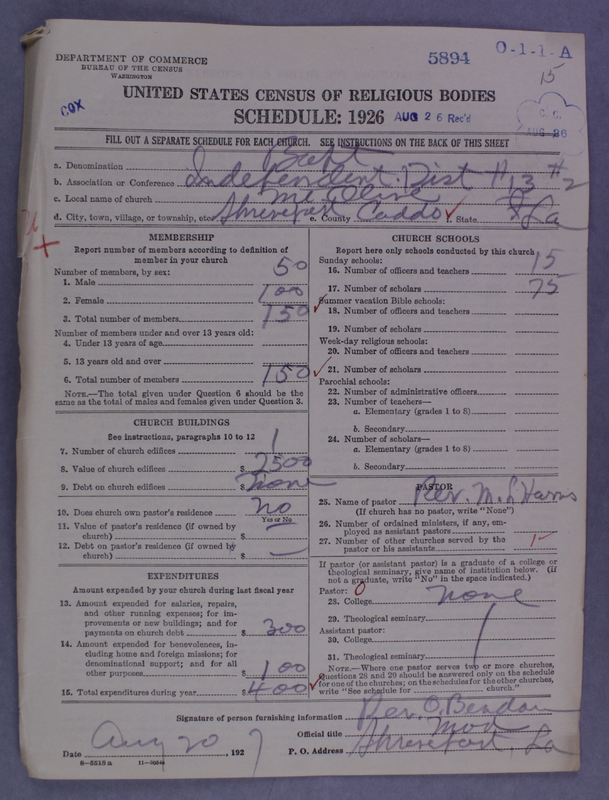 DEPARTMENT OF COMMERCE
BUREAU OF THE CENSUS
WASHINGTON
5894
O-1-1-A
15
UNITED STATES CENSUS OF RELIGIOUS BODIES
COX
SCHEDULE: 1926
AUG 26 Rec'd
AUG 26
FILL OUT A SEPARATE SCHEDULE FOR EACH CHURCH. SEE INSTRUCTIONS ON THE BACK OF THIS SHEET
a. Denomination Bapt
b. Association or Conference Independent. Dist #13 #2
c. Local name of church Mt Olive
d. City, town, village, or township, etc. Shreveport e. County Caddo f. State La
MEMBERSHIP
Report number of members according to definition of
member in your church
Number of members, by sex:
1. Male 50
2. Female 100
3. Total number of members 150
Number of members under and over 13 years old:
4. Under 13 years of age
5. 13 years old and over
6. Total number of members 150
NOTE.—The total given under Question 6 should be the
same as the total of males and females given under Question 3.
CHURCH BUILDINGS
See instructions, paragraphs 10 to 12
7. Number of church edifices 1
8. Value of church edifices $ 2500
9. Debt on church edifices $ none
10. Does church own pastor's residence? no
Yes or No
11. Value of pastor's residence (if owned by
church) $
12. Debt on pastor's residence (if owned by
church) $ —
EXPENDITURES
Amount expended by your church during last fiscal year
13. Amount expended for salaries, repairs,
and other running expenses; for im-
provements or new buildings; and for
payments on church debt $ 300
14. Amount expended for benevolences, in-
cluding home and foreign missions; for
denominational support; and for all
other purposes $ 100
15. Total expenditures during year $ 400
CHURCH SCHOOLS
Report here only schools conducted by this church
Sunday schools:
16. Number of officers and teachers 15
17. Number of scholars 75
Summer vacation Bible schools:
18. Number of officers and teachers
19. Number of scholars
Week-day religious schools:
20. Number of officers and teachers
21. Number of scholars
Parochial schools:
22. Number of administrative officers
23. Number of teachers—
a. Elementary (grades 1 to 8)
b. Secondary
24. Number of scholars—
a. Elementary (grades 1 to 8)
b. Secondary
PASTOR
25. Name of pastor Rev. M. L Harris
(If church has no pastor, write "None")
26. Number of ordained ministers, if any, em-
ployed as assistant pastors
27. Number of other churches served by the
pastor or his assistants 1
If pastor (or assistant pastor) is a graduate of a college or
theological seminary, give name of institution below. (If
not a graduate, write "No" in the space indicated.)
Pastor: 0
28. College none
29. Theological seminary
Assistant pastor:
30. College
31. Theological seminary
NOTE.—Where one pastor serves two or more churches,
Questions 28 and 29 should be answered only on the schedule
for one of the churches; on the schedules for the other churches,
write "See schedule for church."
Signature of person furnishing information Rev. O. Bendau
Official title Mod
Date Aug 20, 1927 P. O. Address Shreveport, La
8—5518a 11—9054a